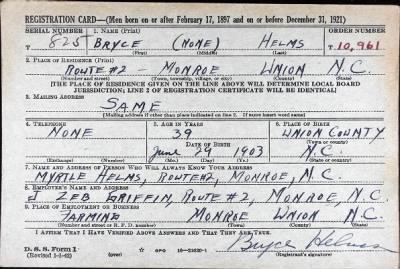 REGISTRATION CARD—(Men born on or after February 17, 1897 and on or before December 31, 1921)
SERIAL NUMBER 1. NAME (Print) ORDER NUMBER
T 825 BRYCE (NONE) HELMS T 10,961
(First) (Middle) (Last)
2. PLACE OF RESIDENCE (Print)
ROUTE #2 - MONROE UNION N.C.
(Number and street) (Town, township, village, or city) (County) (State)
[THE PLACE OF RESIDENCE GIVEN ON THE LINE ABOVE WILL DETERMINE LOCAL BOARD
JURISDICTION; LINE 2 OF REGISTRATION CERTIFICATE WILL BE IDENTICAL]
3. MAILING ADDRESS
SAME
[Mailing address if other than place indicated on line 2. If same insert word same]
4. TELEPHONE 5. AGE IN YEARS 6. PLACE OF BIRTH
NONE 39 UNION COUNTY
DATE OF BIRTH (Town or county)
June 29 1903 N.C.
(Exchange) (Number) (Mo.) (Day) (Yr.) (State or country)
7. NAME AND ADDRESS OF PERSON WHO WILL ALWAYS KNOW YOUR ADDRESS
MYRTLE HELMS, ROUTE #2, MONROE, N.C.
8. EMPLOYER'S NAME AND ADDRESS
J ZEB GRIFFIN, ROUTE #2, MONROE, N.C.
9. PLACE OF EMPLOYMENT OR BUSINESS
FARMING MONROE UNION N.C.
(Number and street or R. F. D. number) (Town) (County) (State)
I AFFIRM THAT I HAVE VERIFIED ABOVE ANSWERS AND THAT THEY ARE TRUE.
D. S. S. Form 1 (over) GPO 16—21630-1 Bryce Helms
(Revised 1-1-42) (Registrant's signature)